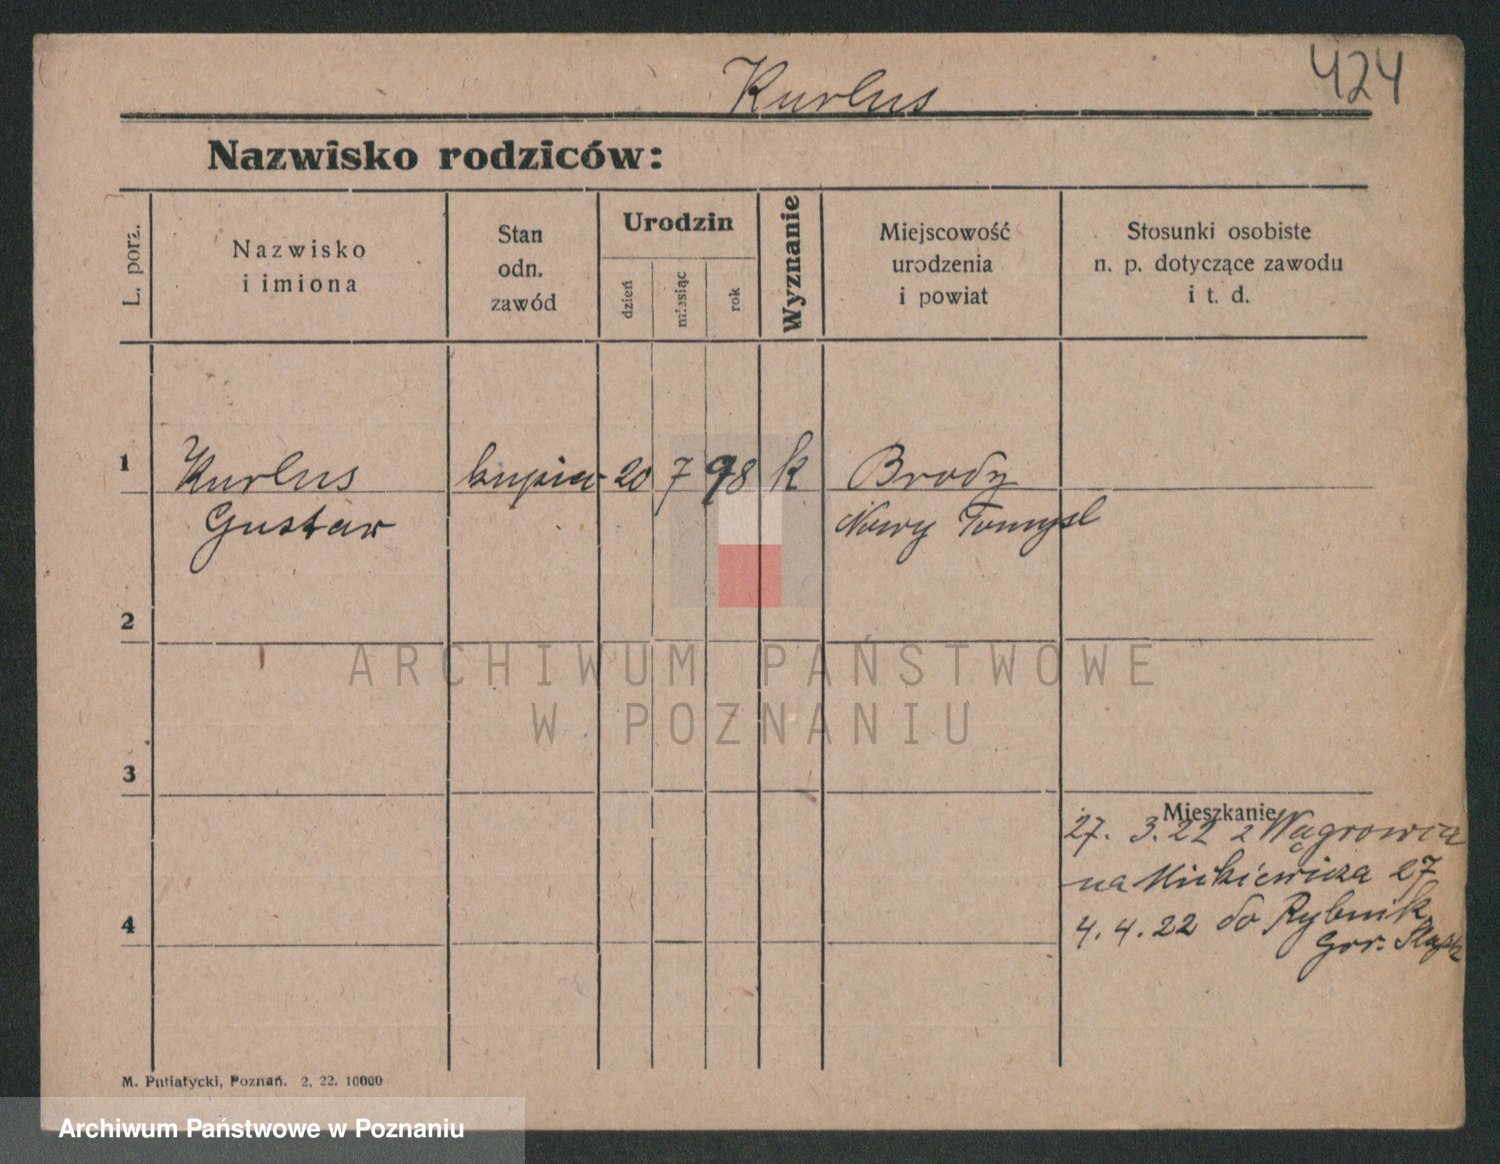 Kurlus
424
Nazwisko rodziców:
L. porz.
Nazwisko
i imiona
Stan
odn.
zawód
Urodzin
dzień
miesiąc
rok
Wyznanie
Miejscowość
urodzenia
i powiat
Stosunki osobiste
n. p. dotyczące zawodu
i t. d.
1
Kurlus kupiec 20 7 98 k Brody
Gustaw Nowy Tomysl
2
ARCHIWUM PAŃSTWOWE
W POZNANIU
3
Mieszkanie
27. 3. 22 z Wągrowca
na Mickiewicza 27
4
4. 4. 22 do Rybnik
Gór. Śląsk
M. Putiatycki, Poznań. 2. 22. 10000
Archiwum Państwowe w Poznaniu